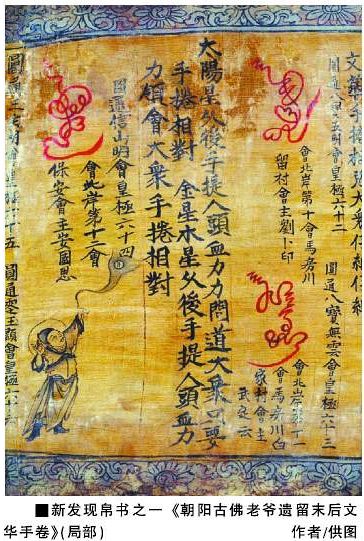 會皇極六十二
會北岸第十會馬房川
留村會主劉卜印
圓通八寶無雲會皇極六十三
會北岸第十一
會馬房川白
家村會主
武定云
太陽星父後手提人頭血刀力問道大眾只要
手捲相對 金星木星父後手提人頭血刀
力領會大眾手捲相對
圓通信山明會皇極六十四
會北岸第十二會
保安會主安國恩
會皇極六十五 圓通零王顯會皇極六十六
■新发现帛书之一《朝阳古佛老爷遗留末后文
华手卷》(局部) 作者/供图